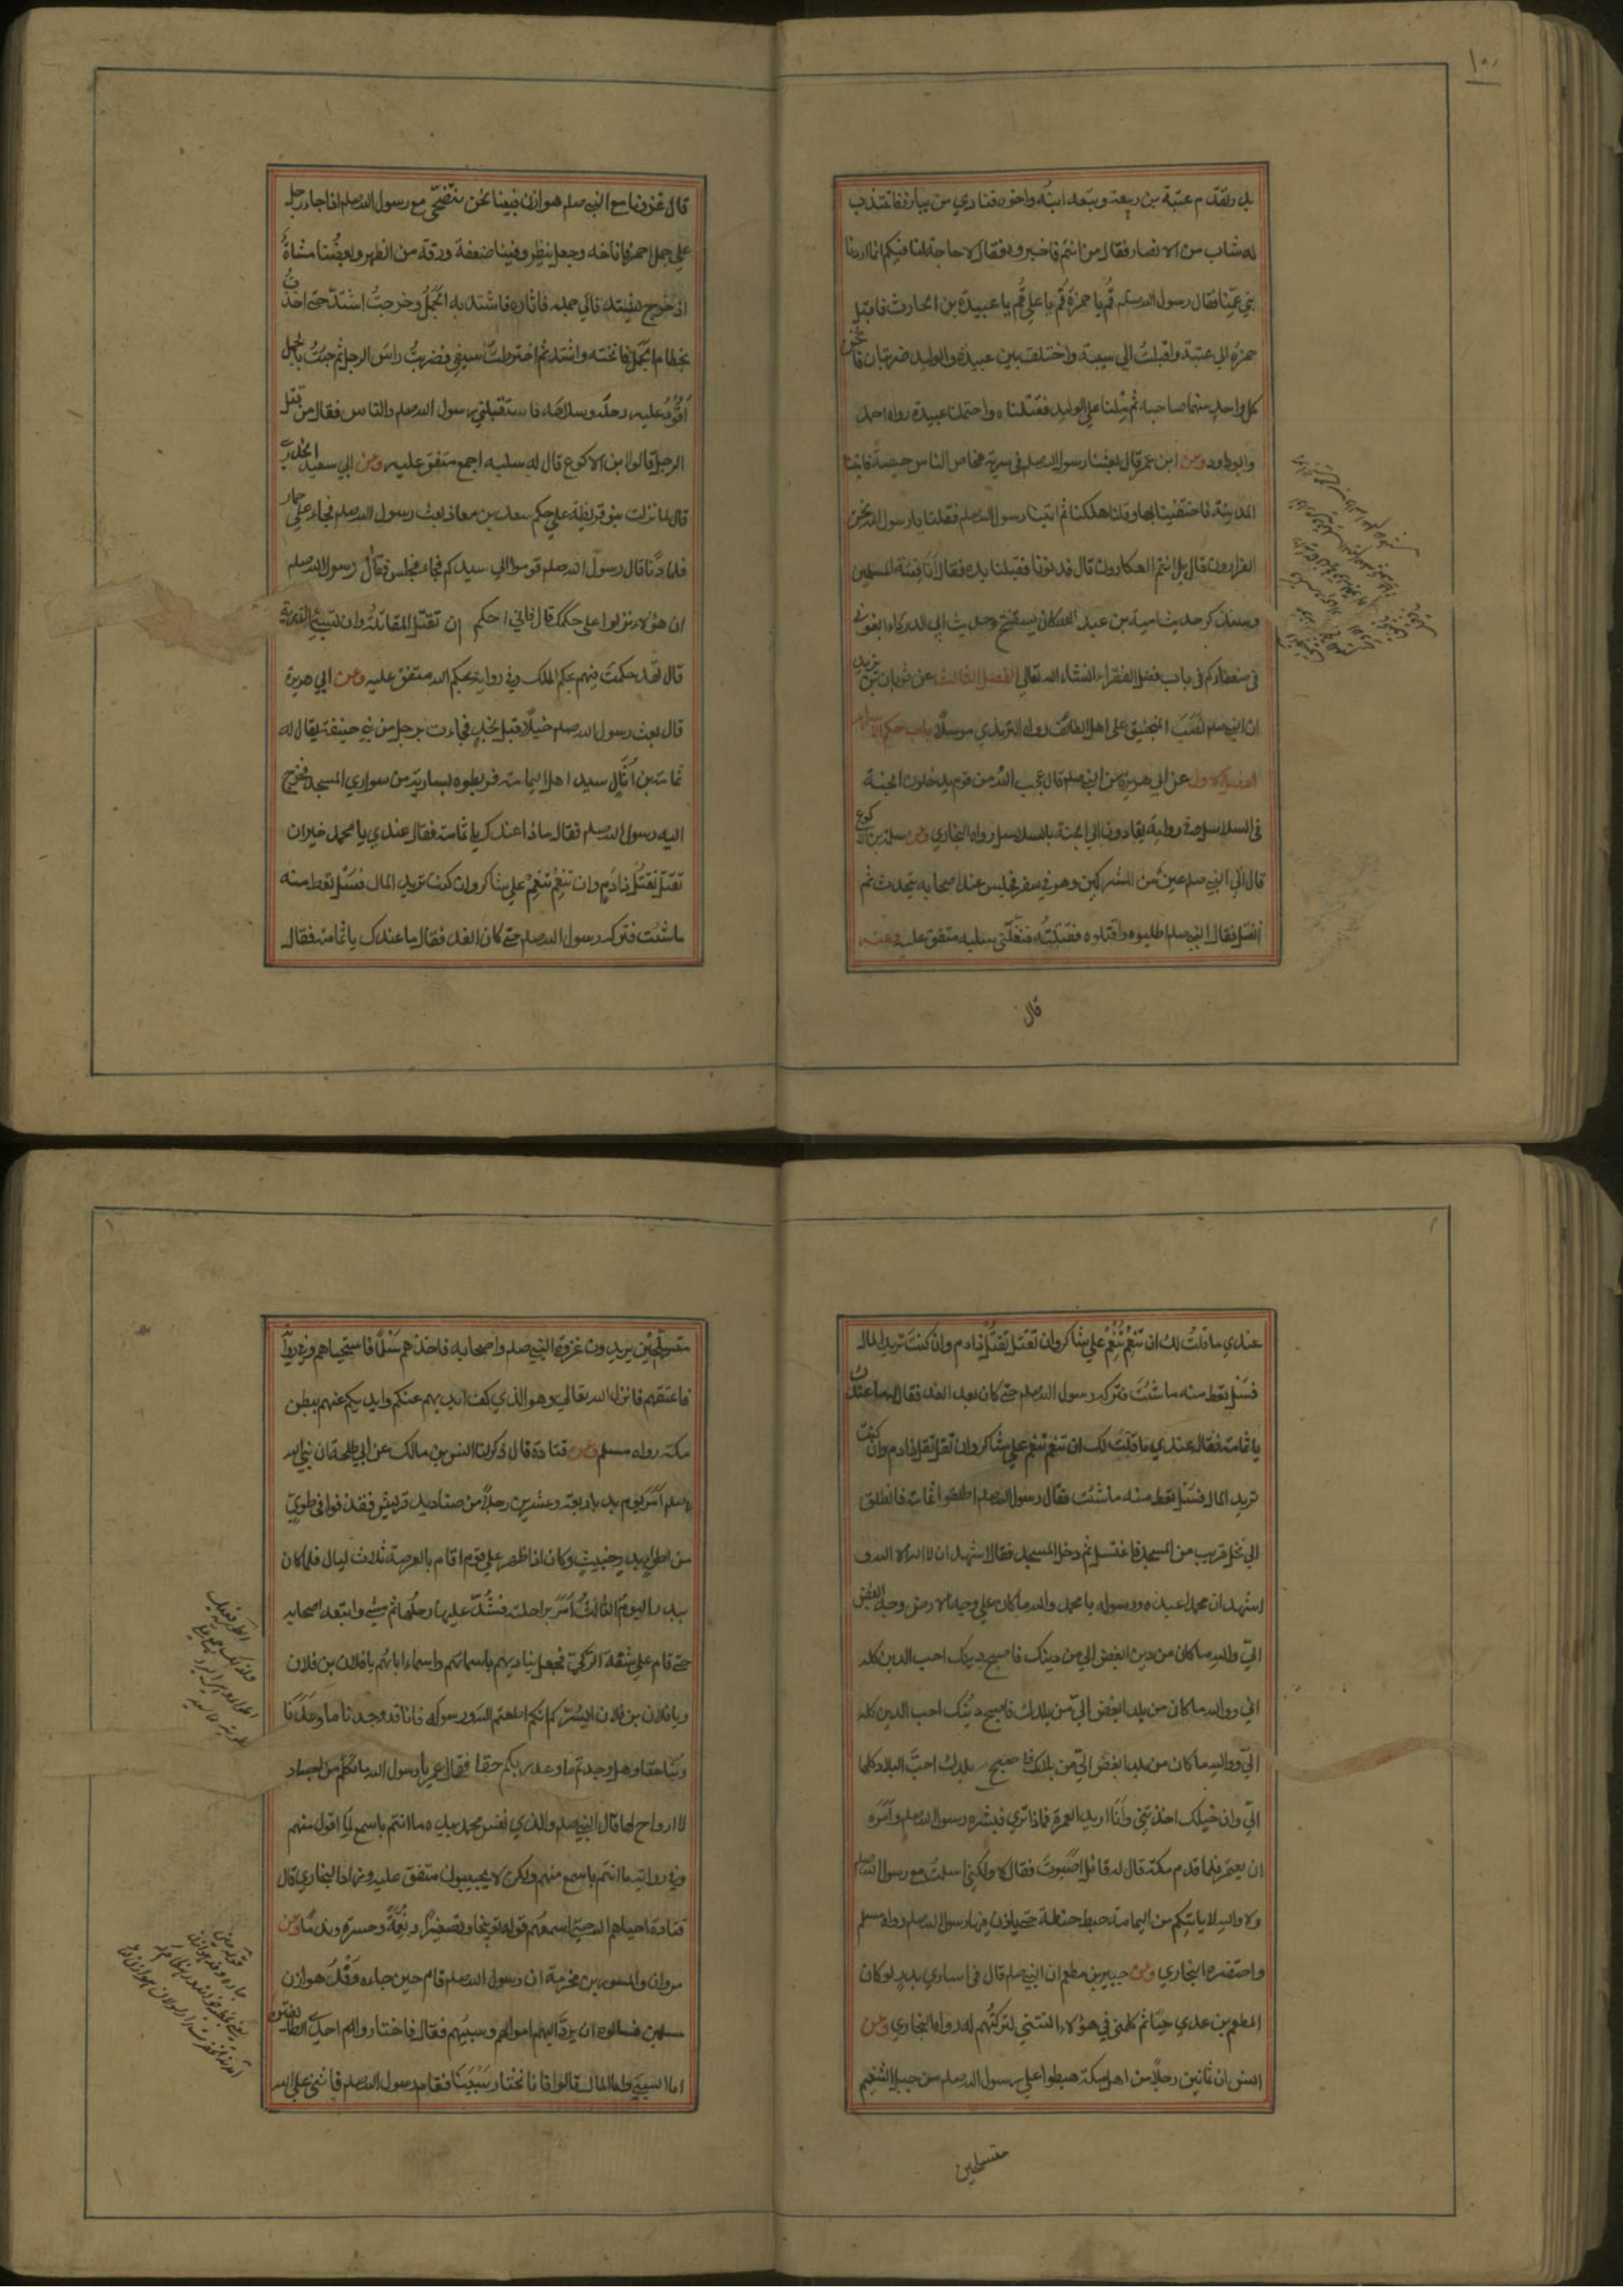 ١٠٠
بدر تقدم عتبة بن ربيعة وتبعه ابنه واخوه فنادي من يبارز فانتدب
له شاب من الانصار فقال من انتم فاخبروه فقال لا حاجة لنا فيكم انما اردنا
بني عمنا فقال رسول الله صلم قُم يا حمزة قُم يا علي قُم يا عبيدة بن الحارث فاقبل
حمزة الي عتبة واقبلتُ الي شيبة واختلف بين عبيدة والوليد ضربتان فاثخن
كل واحد منهما صاحبه ثم مِلنا علي الوليد فقتلناه واحتملنا عبيدة رواه احمد
وابوداود وعن ابن عمر قال بعثنا رسول الله صلم في سرية فحاص الناس حيصة فاتينا
المدينة فاختفينا بها وقلنا هلكنا ثم اتينا رسول الله صلم فقلنا يا رسول الله نحن
الفرارون قال بل انتم العكارون قال فدنونا فقبلنا يده فقال انا فئة المسلمين
وسنذكر حديث امية بن عبد الله كان يستفتح وحديث ابي الدرداء ابغوني
في ضعفاءكم في باب فضل الفقراء انشاء الله تعالي الفصل الثالث عن ثوبان بن يزيد
ان النبي صلم نَصَبَ المنجنيق علي اهل الطائف رواه الترمذي مرسلاً باب حكم الاسراء
الفصل الاول عن ابي هريرة عن النبي صلم قال عجب الله من قوم يدخلون الجنة
في السلاسل وفي رواية يقادون الي الجنة بالسلاسل رواه البخاري وعن سلمة بن الاكوع
قال اتي النبي صلم عين من المشركين وهو في سفر فجلس عند اصحابه يتحدث ثم
انفتل فقال النبي صلم اطلبوه واقتلوه فقتلتُه فنفّلني سلبه متفق عليه وعنه
قال
قال غزونا مع النبي صلم هوازن فبينا نحن نتضحّي مع رسول الله صلم اذا جاء رجل
علي جمل احمر فاناخه وجعل ينظر وفينا ضعفة ورقة من الظهر وبعضُنا مشاةٌ
اذ خرج يشتد فاتي جمله فاثاره فاشتد به الجملُ وخرجتُ اشتدّ حتي اخذتُ
بخطام الجمل فانخته واشتد ثم اخترطتُ سيفي فضربتُ راس الرجل ثم جئتُ بالجمل
اقُودُ عليه رحله وسلاحه فاستقبلني رسول الله صلم والناس فقال من قتل
الرجل قالوا ابن الاكوع قال له سلبه اجمع متفق عليه وعن ابي سعيد الخدري
قال لما نزلت بنو قريظة علي حكم سعد بن معاذ بعث رسول الله صلم فجاء علي حمار
فلما دنا قال رسول الله صلم قوموا الي سيدكم فجاء فجلس فقال رسول الله صلم
ان هؤلاء نزلوا علي حكمك قال فاني احكم ان تقتل المقاتلةُ وان تسبي الذرية
قال لقد حكمتَ فيهم بحكم الملك وفي رواية بحكم الله متفق عليه وعن ابي هريرة
قال بعث رسول الله صلم خيلاً قبل نجدٍ فجاءت برجل من بني حنيفة يقال له
ثمامة بن أُثَالٍ سيد اهل اليمامة فربطوه بسارية من سواري المسجد فخرج
اليه رسول الله صلم فقال ماذا عندك يا ثمامة فقال عندي يا محمد خيران
تقتُل تقتُل ذا دَمٍ وان تنعِمْ تنعِمْ علي شاكر وان كنت تريد المال فسَل تعط منه
ما شئت فتركه رسول الله صلم حتي كان الغد فقال ما عندك يا ثمامة فقال
عندي ما قلتُ لك ان تنعِمْ تنعِمْ علي شاكر وان تقتل تقتل ذا دم وان كنتَ تريد المال
فسَل تعط منه ما شئتَ فتركه رسول الله صلم حتي كان بعد الغد فقال له ما عندك
يا ثمامة فقال عندي ما قلت لك ان تنعم تنعم علي شاكر وان تقتل تقتل ذا دم وان كنت
تريد المال فسَل تعط منه ما شئت فقال رسول الله صلم اطلقوا ثمامة فانطلق
الي نخل قريب من المسجد فاغتسل ثم دخل المسجد فقال اشهد ان لا اله الا الله و
اشهد ان محمدا عبده ورسوله يا محمد والله ما كان علي وجه الارض وجه ابغض
اليّ والله ما كان من دين ابغض الي من دينك فاصبح دينك احب الدين كله
الي ووالله ما كان من بلد ابغض اليّ من بلدك فاصبح دينك احب الدين كله
اليّ ووالله ما كان من بلد ابغض اليّ من بلدك فاصبح بلدك احبَّ البلاد كلها
اليّ وان خيلك اخذتني وانا اريد العمرة فماذا تري فبشره رسول الله صلم وامَرَه
ان يعتمر فلما قدم مكة قال له قائل اصَبَوتَ فقال لا ولكني اسلمتُ مع رسول الله صلم
ولا والله لا ياتيكم من اليمامة حبة حنطة حتي ياذن فيها رسول الله صلم رواه مسلم
واختصره البخاري وعن جبير بن مطعم ان النبي صلم قال في اساري بدر لو كان
المطعم بن عدي حيّا ثم كلمني في هؤلاء النتني لتركتُهم له رواه البخاري وعن
انس ان ثمانين رجلاً من اهل مكة هبطوا علي رسول الله صلم من جبل التنعيم
متسلحين
متسلّحين يريدون غزوة النبي صلم واصحابه فاخذهم سَلَماً فاستحياهم وفي رواية
فاعتقهم فانزل الله تعالي وهو الذي كف ايديهم عنكم وايديكم عنهم ببطن
مكة رواه مسلم وعن قتادة قال ذكر لنا انس بن مالك عن ابي طلحة ان نبي الله
صلم امَر يوم بدر باربعة وعشرين رجلاً من صناديد قريش فقذفوا في طويّ
من اطواء بدر خبيث وكان اذا ظهر علي قوم اقام بالعرصة ثلاث ليال فلما كان
ببدر اليومُ الثالثُ امَر براحلته فشُدّ عليها رحلُها ثم مشي واتبعه اصحابه
حتي قام علي شفة الركيّ فجعل يناديهم باسمائهم واسماء ابائهم يا فلان بن فلان
ويا فلان بن فلان ايسُرّكم انكم اطعتم الله ورسوله فانا قد وجدنا ما وعدَنا
ربّنا حقا وهل وجدتم ما وعد ربكم حقا فقال عمر يا رسول الله ما تكلّم من اجساد
لا ارواح لها قال النبي صلم والذي نفس محمد بيده ما انتم باسمع لما اقول منهم
وفي رواية ما انتم باسمع منهم ولكن لا يجيبون متفق عليه وزاد البخاري قال
قتادة احياهم الله حتي اسمعهم قوله توبيخا وتصغيراً ونقمةً وحسرة وندماً وعن
مروان والمسور بن مخرمة ان رسول الله صلم قام حين جاءه وَفْدُ هوازن
مسلمين فسالوه ان يردّ اليهم اموالهم وسبيهم فقال فاختاروا لهم احدي الطائفتين
اما السبي واما المال قالوا فانا نختار سَبْيَنَا فقام رسول الله صلم فاثني علي الله